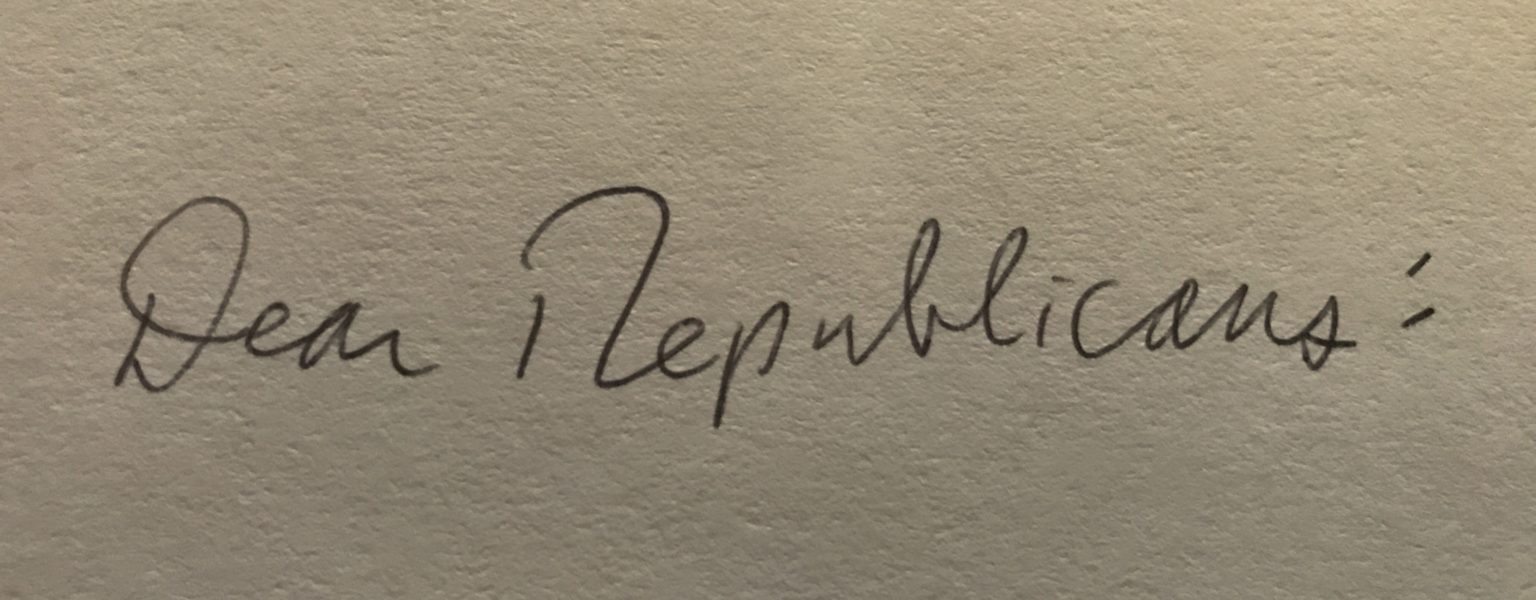 Dear Republicans: